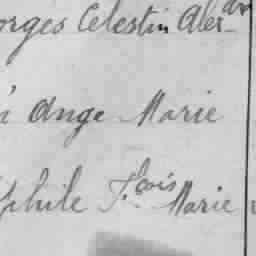 orges Celestin Alexan
Ange Marie
phile F.çois Marie